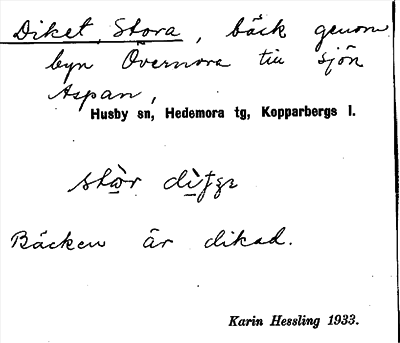 Diket, Stora, bäck genom
byn Övernora till sjön
Aspan,
Husby sn, Hedemora tg, Kopparbergs l.
Bäcken är dikad.
Karin Hessling 1933.